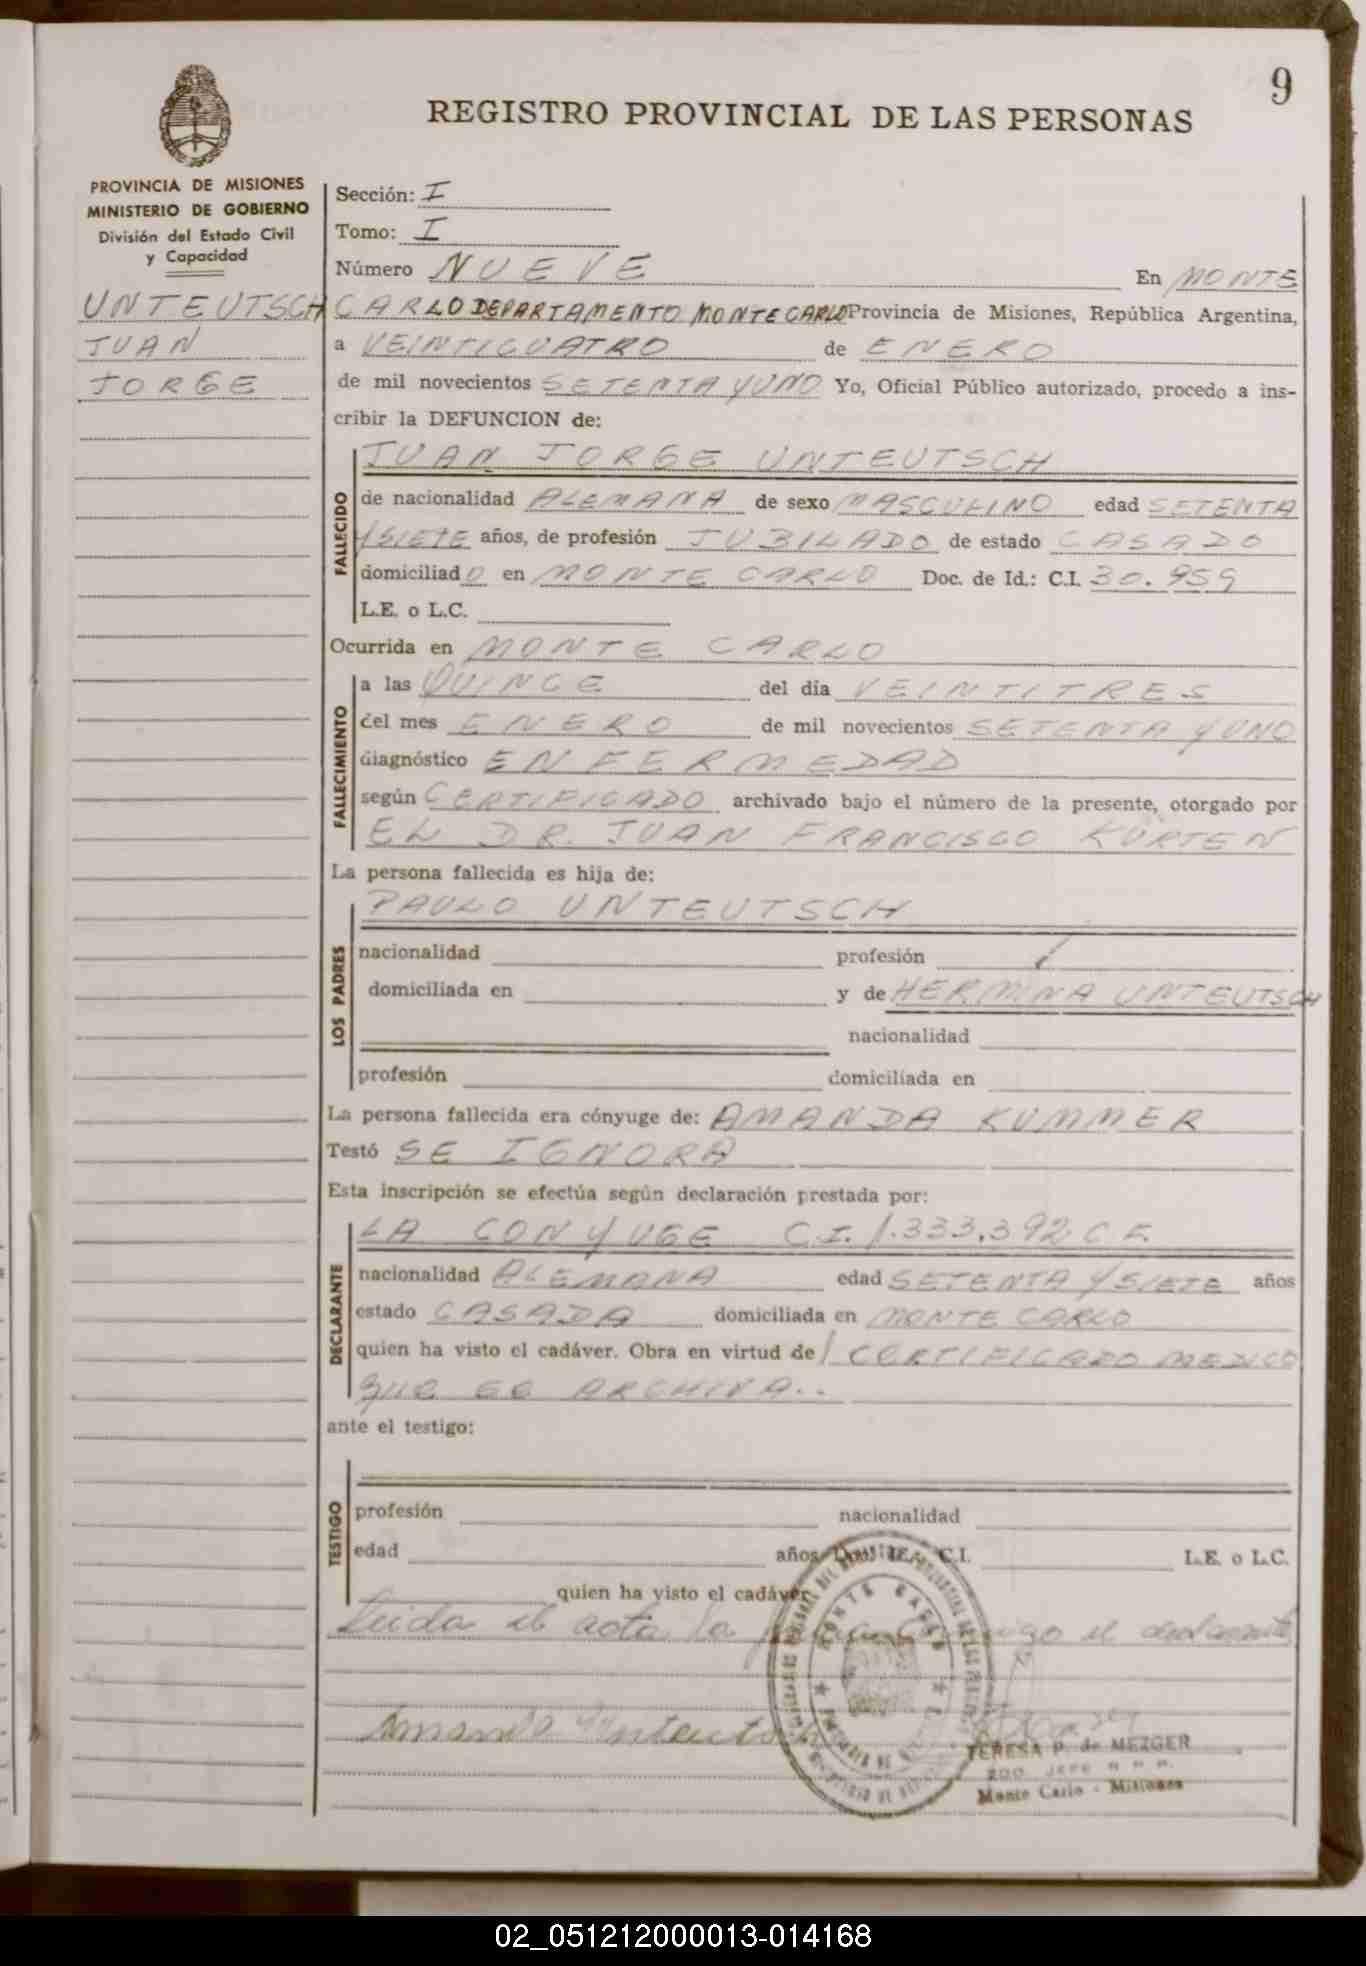 9
REGISTRO PROVINCIAL DE LAS PERSONAS
PROVINCIA DE MISIONES
MINISTERIO DE GOBIERNO
División del Estado Civil
y Capacidad
UNTEUTSCH
JUAN
JORGE
Sección: I
Tomo: I
Número NUEVE En MONTE
CARLO DEPARTAMENTO MONTECARLO Provincia de Misiones, República Argentina,
a VEINTICUATRO de ENERO
de mil novecientos SETENTA Y UNO Yo, Oficial Público autorizado, procedo a ins-
cribir la DEFUNCION de:
FALLECIDO
JUAN JORGE UNTEUTSCH
de nacionalidad ALEMANA de sexo MASCULINO edad SETENTA
Y SIETE años, de profesión JUBILADO de estado CASADO
domiciliado en MONTE CARLO Doc. de Id.: C.I. 30.959
L.E. o L.C.
Ocurrida en MONTE CARLO
FALLECIMIENTO
a las QUINCE del día VEINTITRES
del mes ENERO de mil novecientos SETENTA Y UNO
diagnóstico ENFERMEDAD
según CERTIFICADO archivado bajo el número de la presente, otorgado por
EL DR. JUAN FRANCISCO KURTEN
La persona fallecida es hija de:
LOS PADRES
PAULO UNTEUTSCH
nacionalidad profesión
domiciliada en y de HERMINA UNTEUTSCH
nacionalidad
profesión domiciliada en
La persona fallecida era cónyuge de: AMANDA KUMMER
Testó SE IGNORA
Esta inscripción se efectúa según declaración prestada por:
DECLARANTE
LA CONYUGE C.I. 1.333.392 C.F.
nacionalidad ALEMANA edad SETENTA Y SIETE años
estado CASADA domiciliada en MONTE CARLO
quien ha visto el cadáver. Obra en virtud de CERTIFICADO MEDICO
que se ARCHIVA..
ante el testigo:
TESTIGO
profesión nacionalidad
edad años C.I. L.E. o L.C.
quien ha visto el cadáver
Leida el acta la el declarante
Amanda Unteutsch
MONTE CARLO
TERESA P. de MEZGER
2DO. JEFE
Monte Carlo - Misiones
02_051212000013-014168